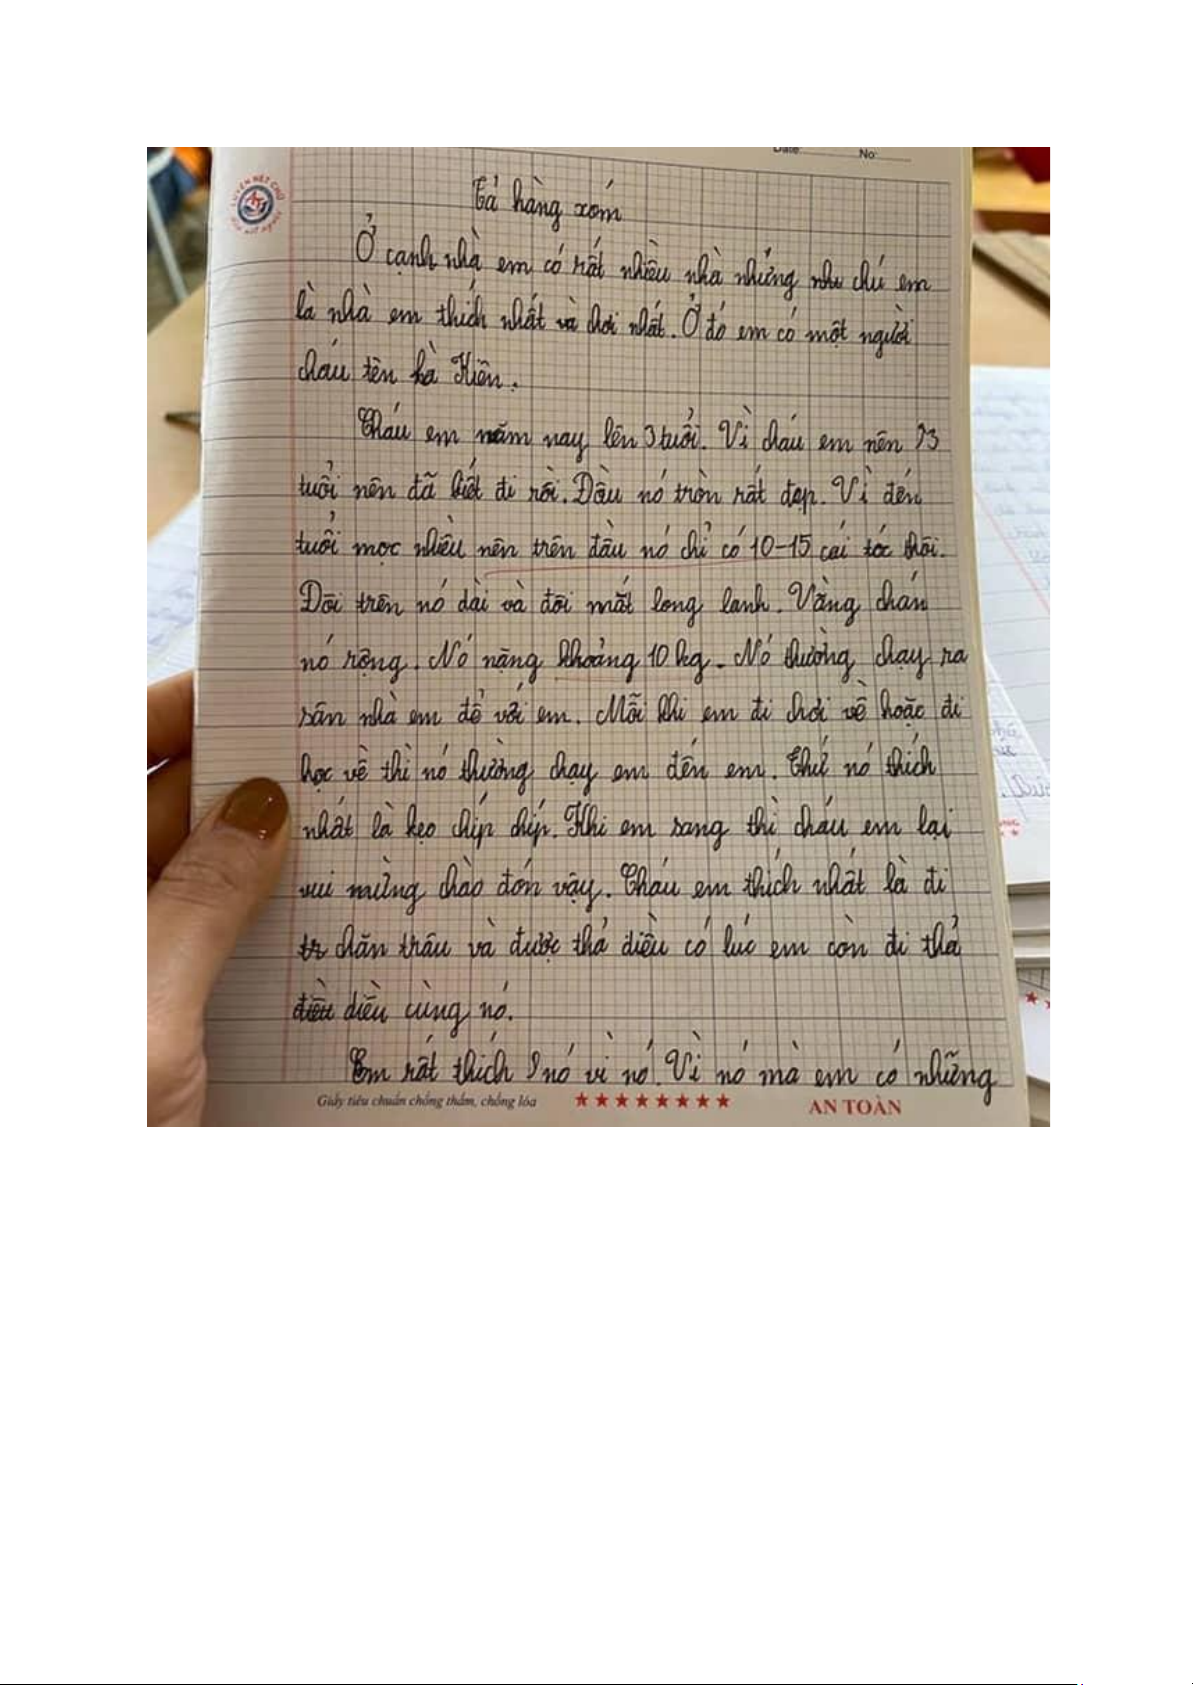 Date: No:
LUYỆN NÉT CHỮ
Tả hàng xóm
Ở cạnh nhà em có rất nhiều nhà nhưng như chú em
là nhà em thích nhất và chơi nhất. Ở đó em có một người
cháu tên hà Kiên.
Cháu em năm nay lên 3 tuổi. Vì cháu em nên 3
tuổi nên đã biết đi rồi. Đầu nó tròn rất đẹp. Vì đến
tuổi mọc nhiều nên trên đầu nó chỉ có 10-15 cái tóc thôi.
Đôi trên nó dài và đôi mắt long lanh. Vầng chán
nó rộng. Nó nặng khoảng 10 kg. Nó thường chạy ra
sân nhà em để với em. Mỗi khi em đi chơi về hoặc đi
học về thì nó thường chạy em đến em. Thứ nó thích
nhất là kẹo chíp chíp. Khi em sang thì cháu em lại
vui mừng chào đón vậy. Cháu em thích nhất là đi
tr chăn trâu và được thả diều có lúc em còn đi thả
điều diều cùng nó.
Em rất thích nó vì nó. Vì nó mà em có những
Giấy tiêu chuẩn chống thấm, chống lóa ★ ★ ★ ★ ★ ★ ★ ★ AN TOÀN